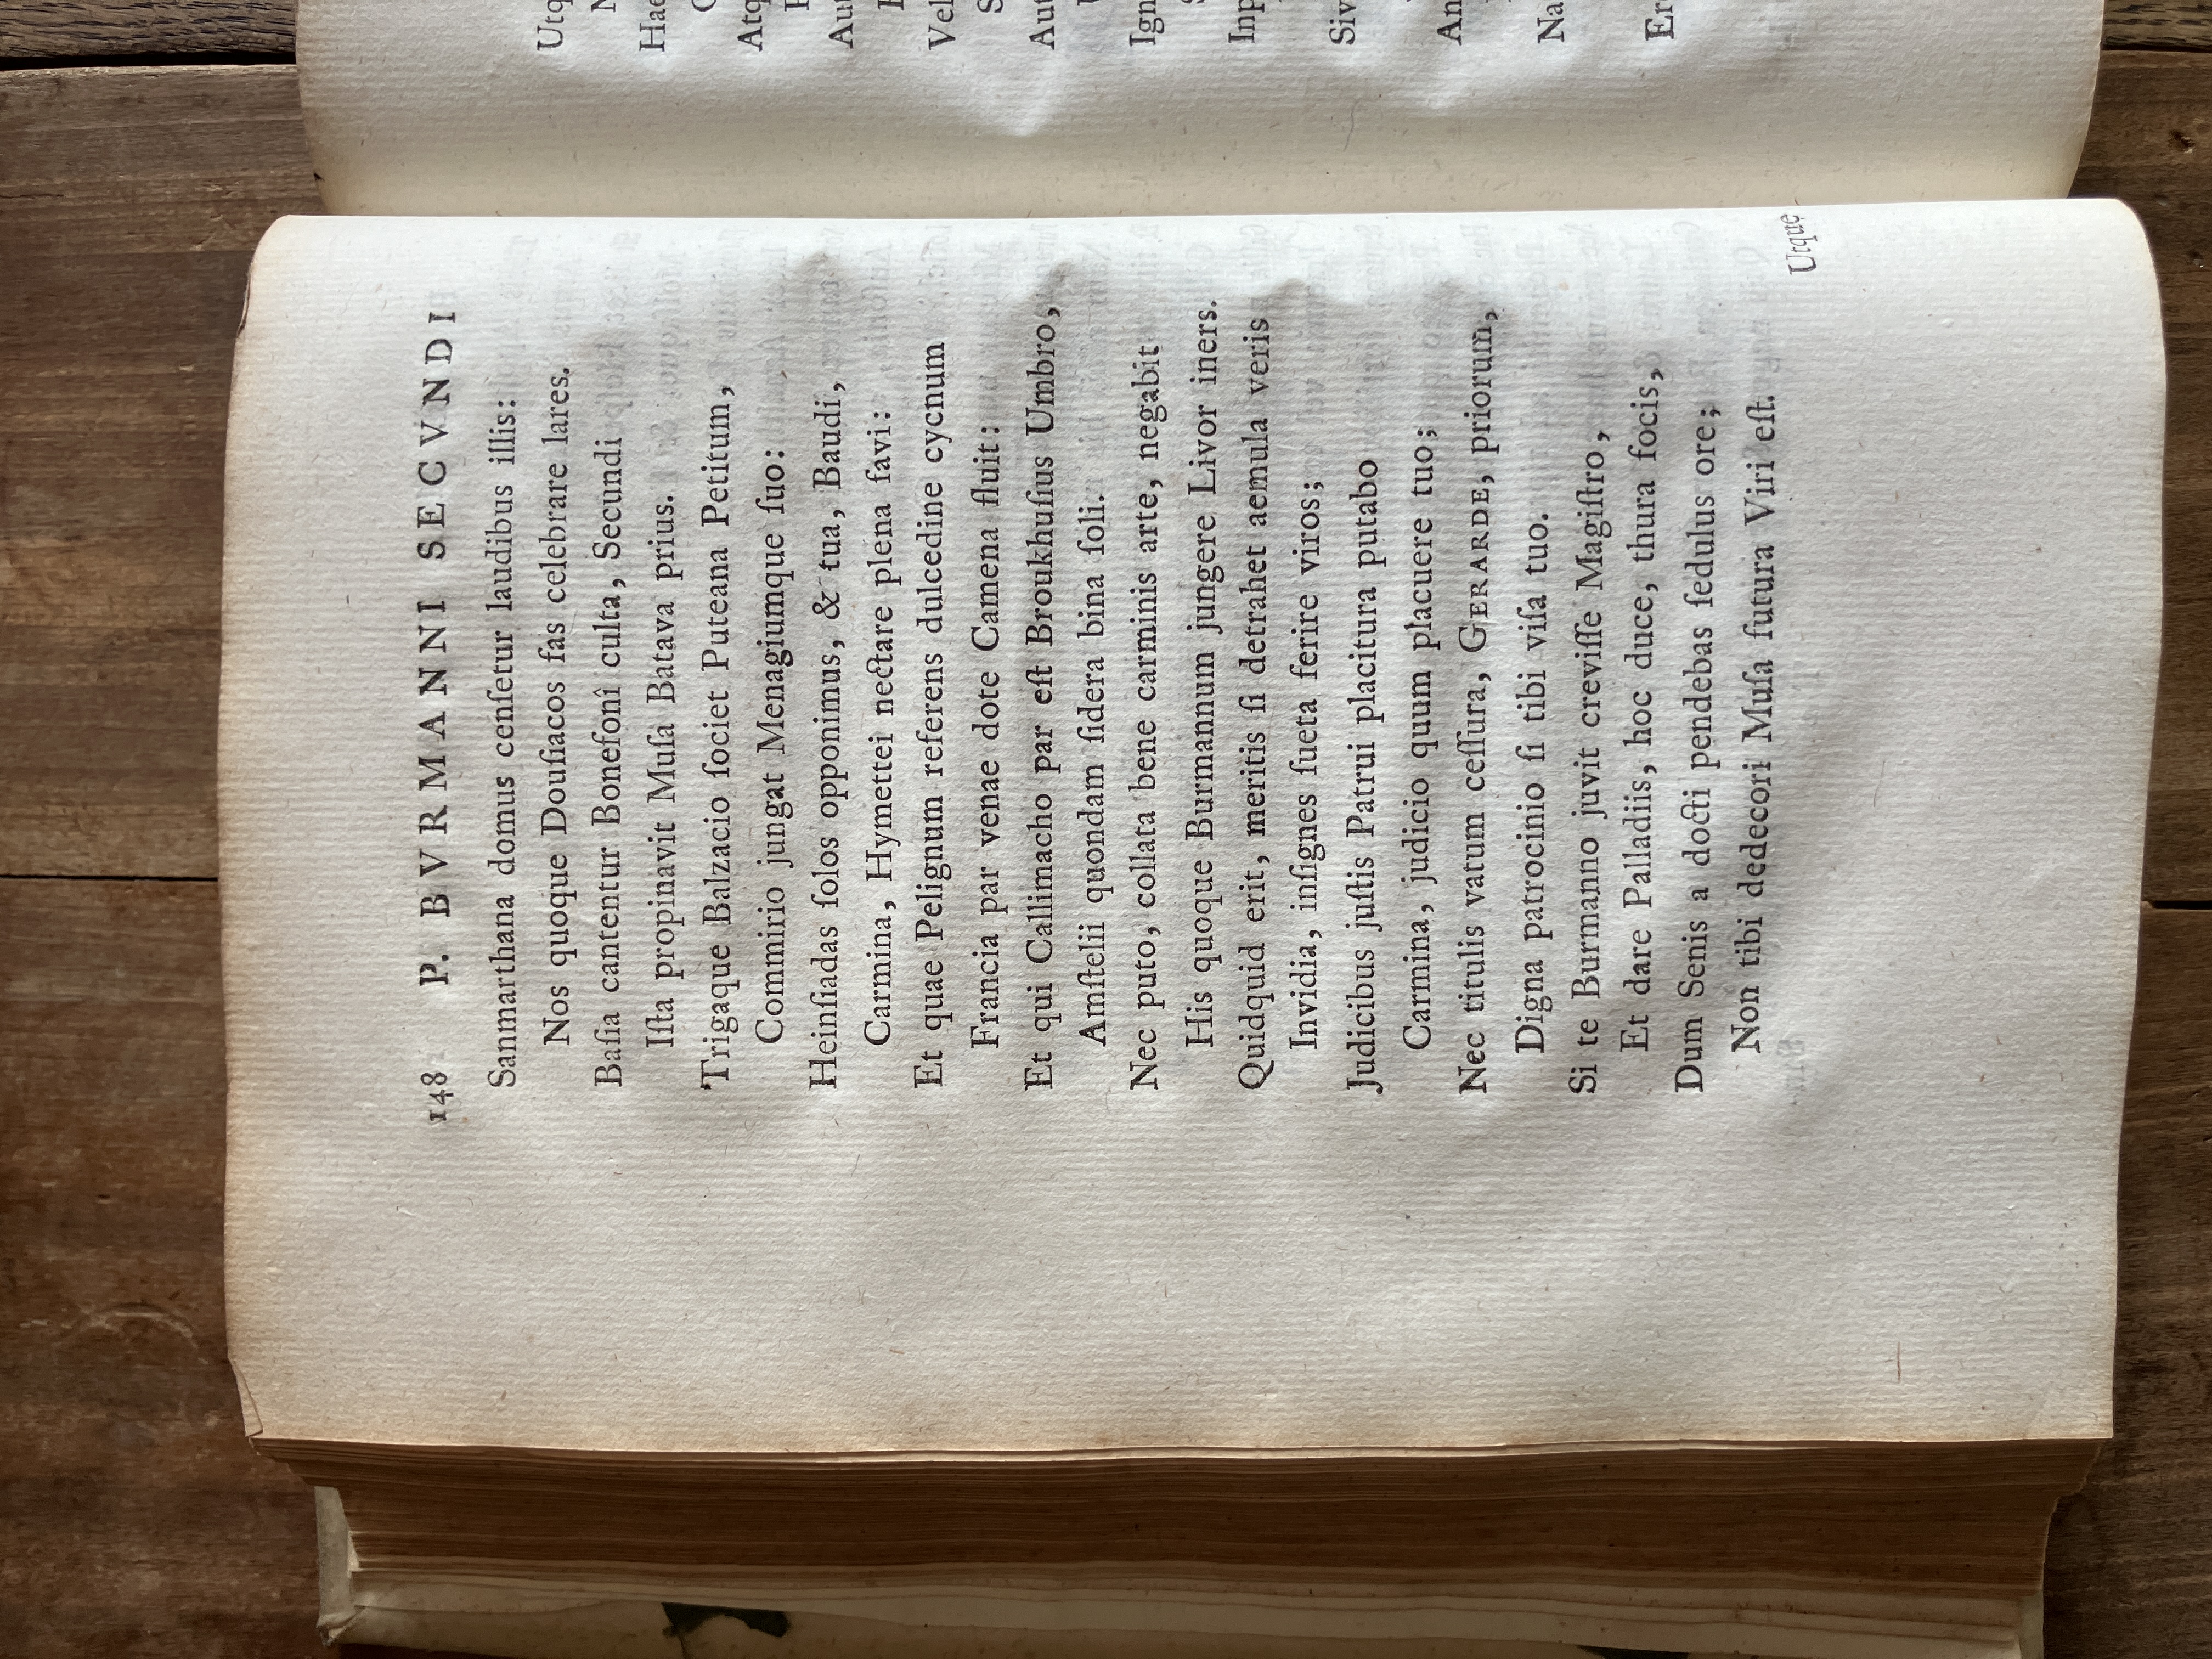 148 P. BVRMANNI SECVNDI
Sanmarthana domus cenſetur laudibus illis:
Nos quoque Douſiacos fas celebrare lares.
Baſia cantentur Bonefonî culta, Secundi
Iſta propinavit Muſa Batava prius.
Trigaque Balzacio ſociet Puteana Petitum,
Commirio jungat Menagiumque ſuo:
Heinſiadas ſolos opponimus, & tua, Baudi,
Carmina, Hymettei nectare plena favi:
Et quae Pelignum referens dulcedine cycnum
Francia par venae dote Camena fluit:
Et qui Callimacho par eſt Broukhuſius Umbro,
Amſtelii quondam ſidera bina ſoli.
Nec puto, collata bene carminis arte, negabit
His quoque Burmannum jungere Livor iners.
Quidquid erit, meritis ſi detrahet aemula veris
Invidia, inſignes ſueta ferire viros;
Judicibus juſtis Patrui placitura putabo
Carmina, judicio quum placuere tuo;
Nec titulis vatum ceſſura, GERARDE, priorum,
Digna patrocinio ſi tibi viſa tuo.
Si te Burmanno juvit creviſſe Magiſtro,
Et dare Palladiis, hoc duce, thura focis,
Dum Senis a docti pendebas ſedulus ore;
Non tibi dedecori Muſa futura Viri eſt.
Utque